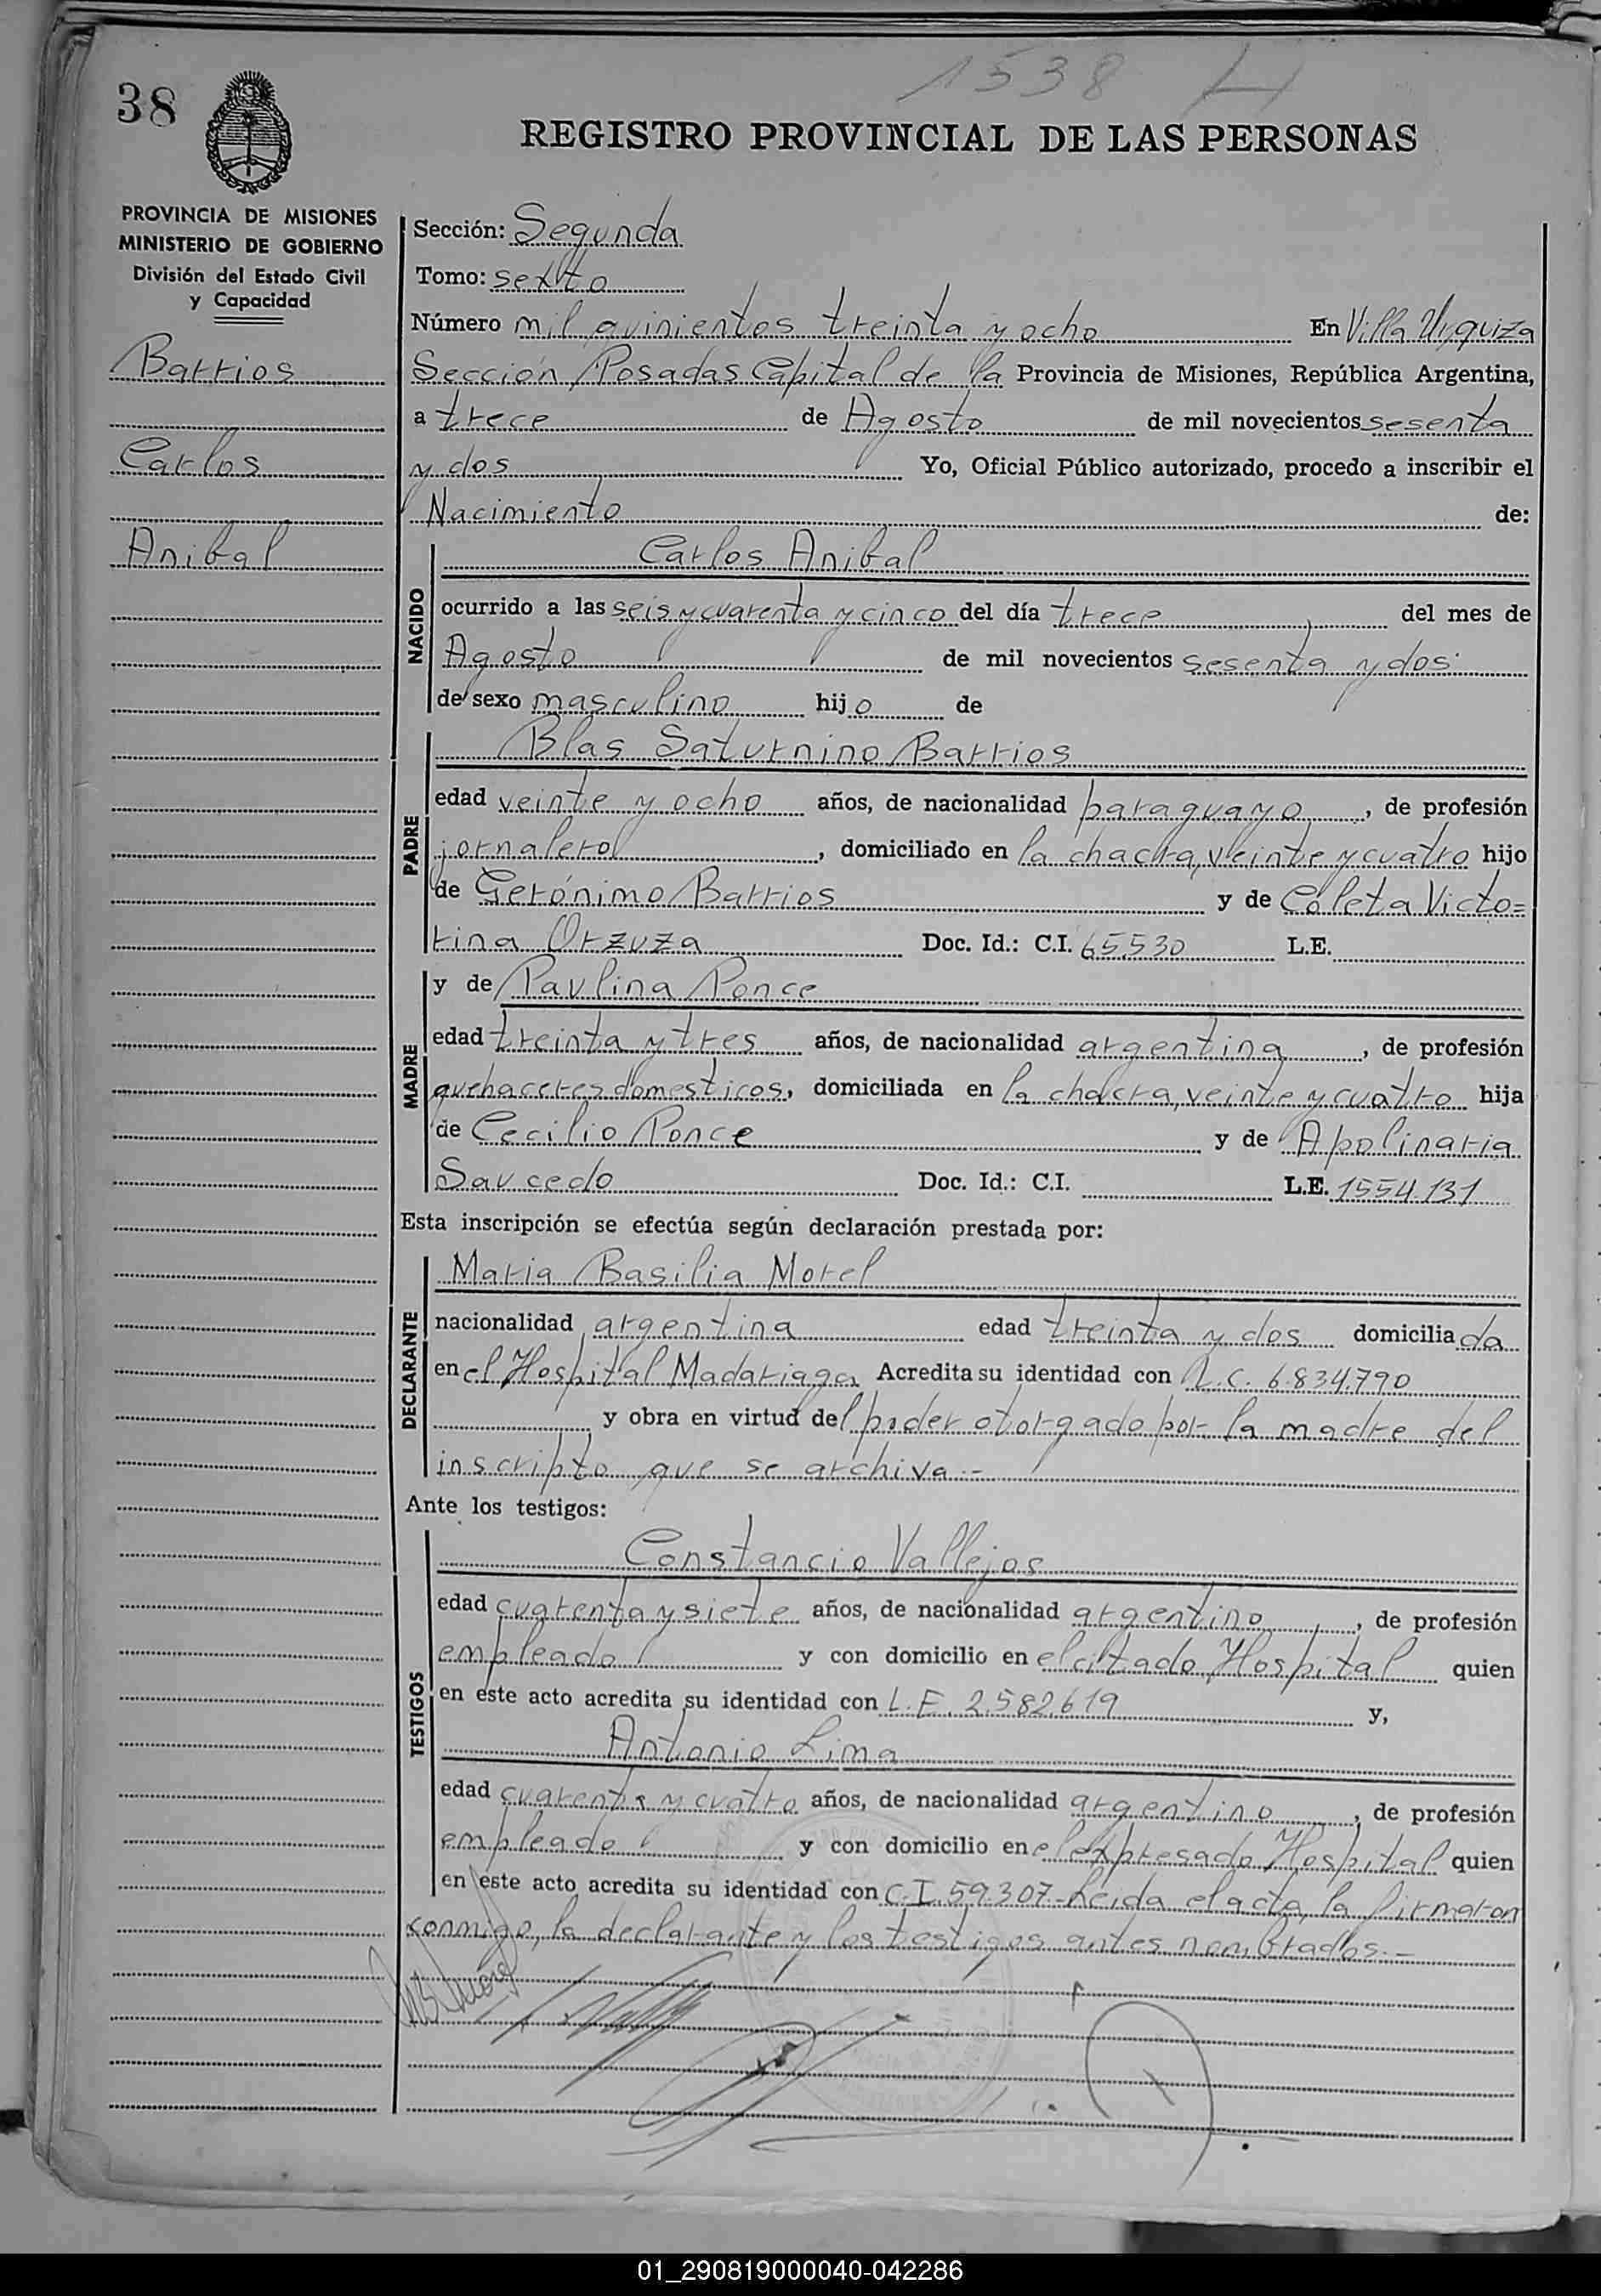 1538 H
38
REGISTRO PROVINCIAL DE LAS PERSONAS
PROVINCIA DE MISIONES
MINISTERIO DE GOBIERNO
División del Estado Civil
y Capacidad
Barrios
Carlos
Anibal
Sección: Segunda
Tomo: sexto
Número mil quinientos treinta y ocho En Villa Urquiza
Sección Posadas Capital de la Provincia de Misiones, República Argentina,
a trece de Agosto de mil novecientos sesenta
y dos Yo, Oficial Público autorizado, procedo a inscribir el
Nacimiento de:
NACIDO
Carlos Anibal
ocurrido a las seis y cuarenta y cinco del día trece del mes de
Agosto de mil novecientos sesenta y dos
de sexo masculino hijo de
PADRE
Blas Saturnino Barrios
edad veinte y ocho años, de nacionalidad paraguayo, de profesión
jornalero, domiciliado en la chacra, veinte y cuatro hijo
de Gerónimo Barrios y de Coleta Victo=
rina Orzuza Doc. Id.: C.I. 65.530 L.E.
MADRE
y de Paulina Ponce
edad treinta y tres años, de nacionalidad argentina, de profesión
quehaceres domesticos, domiciliada en la chacra, veinte y cuatro hija
de Cecilio Ponce y de Apolinaria
Saucedo Doc. Id.: C.I. L.E. 1554.131
Esta inscripción se efectúa según declaración prestada por:
DECLARANTE
Maria Basilia Morel
nacionalidad argentina edad treinta y dos domiciliada
en el Hospital Madariaga Acredita su identidad con L.C. 6.834.790
y obra en virtud del poder otorgado por la madre del
inscripto que se archiva.-
Ante los testigos:
TESTIGOS
Constancio Vallejos
edad cuarenta y siete años, de nacionalidad argentino, de profesión
empleado y con domicilio en el citado Hospital quien
en este acto acredita su identidad con L.E. 2.582.619 y,
Antonio Lima
edad cuarenta y cuatro años, de nacionalidad argentino, de profesión
empleado y con domicilio en el expresado Hospital quien
en este acto acredita su identidad con C.I. 59.307.-Leida el acta, la firmaron
conmigo, la declarante y los testigos antes nombrados.-
01_290819000040-042286